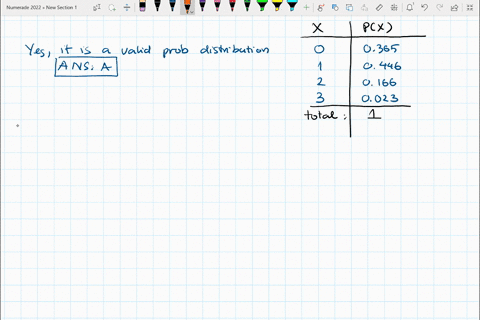 Numerade 2022 » New Section 1
Yes, it is a valid prob distribution
ANS. A
X P(X)
0 0.365
1 0.446
2 0.166
3 0.023
total: 1